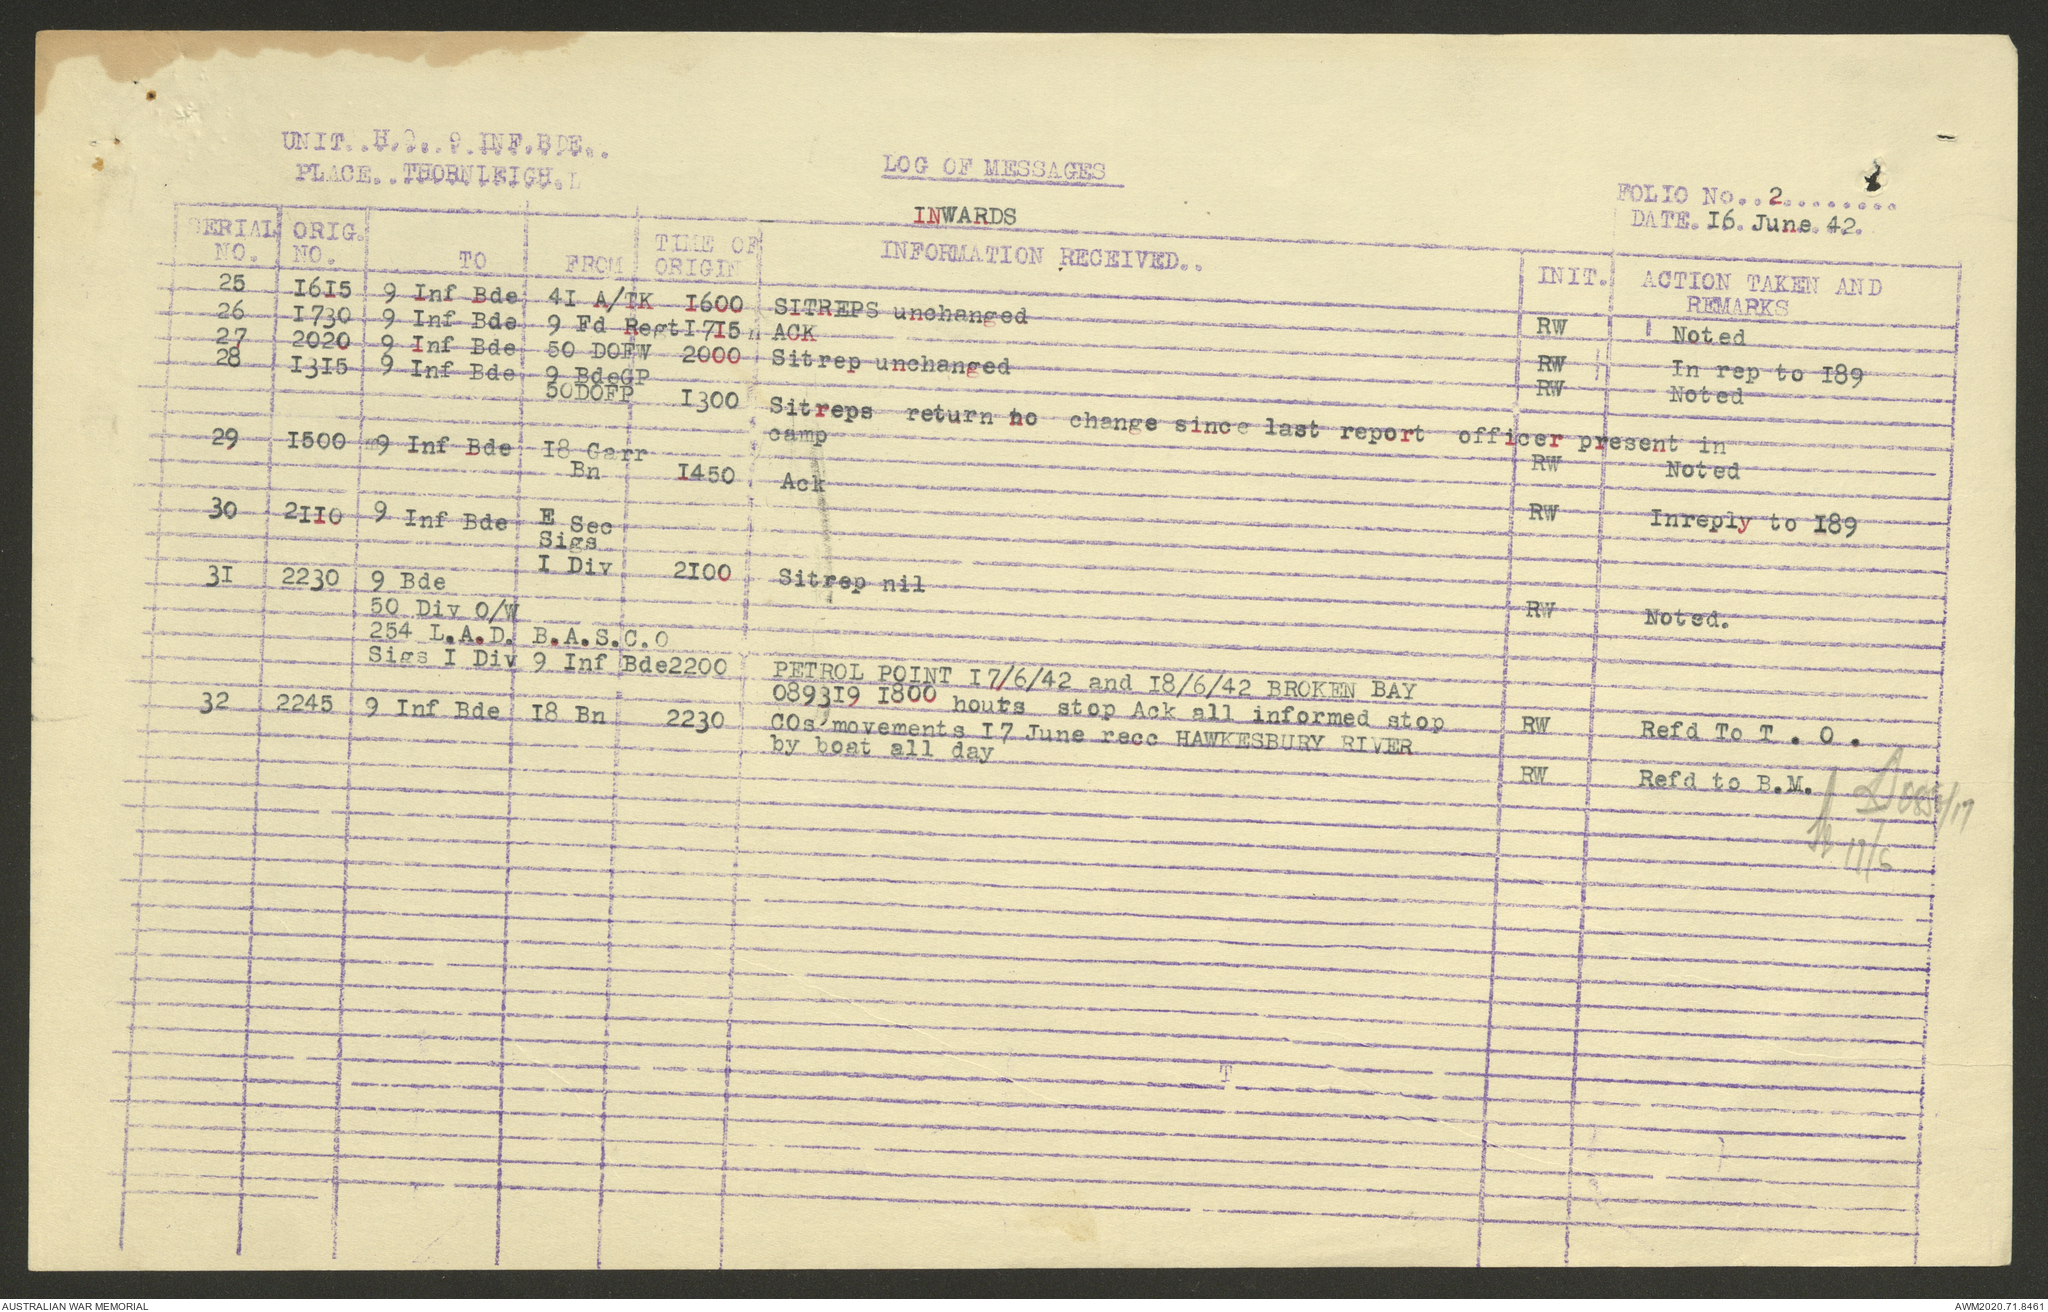 UNIT..H.Q..9.INF.BDE..
PLACE..THORNLEIGH.
LOG OF MESSAGES
INWARDS
FOLIO No..2.........
DATE.16.June.42.
SERIAL NO. ORIG. NO. TO FROM TIME OF ORIGIN INFORMATION RECEIVED.. INIT. ACTION TAKEN AND REMARKS
25 1615 9 Inf Bde 41 A/TK 1600 SITREPS unchanged RW Noted
26 1730 9 Inf Bde 9 Fd Regt 1715 ACK RW In rep to 189
27 2020 9 Inf Bde 50 DOFW 2000 Sitrep unchanged RW Noted
28 1315 9 Inf Bde 9 BdeGP
50DOFP 1300 Sitreps return no change since last report officer present in
camp RW Noted
29 1500 9 Inf Bde 18 Garr
Bn 1450 Ack RW Inreply to 189
30 2110 9 Inf Bde E Sec
Sigs
1 Div 2100 Sitrep nil RW Noted.
31 2230 9 Bde
50 Div O/W
254 L.A.D. B.A.S.C.O
Sigs 1 Div 9 Inf Bde 2200 PETROL POINT 17/6/42 and 18/6/42 BROKEN BAY
089319 1800 hours stop Ack all informed stop RW Refd To T . O .
32 2245 9 Inf Bde 18 Bn 2230 COs' movements 17 June recc HAWKESBURY RIVER
by boat all day RW Refd to B.M.
17/6
T
AUSTRALIAN WAR MEMORIAL
AWM2020.71.8461